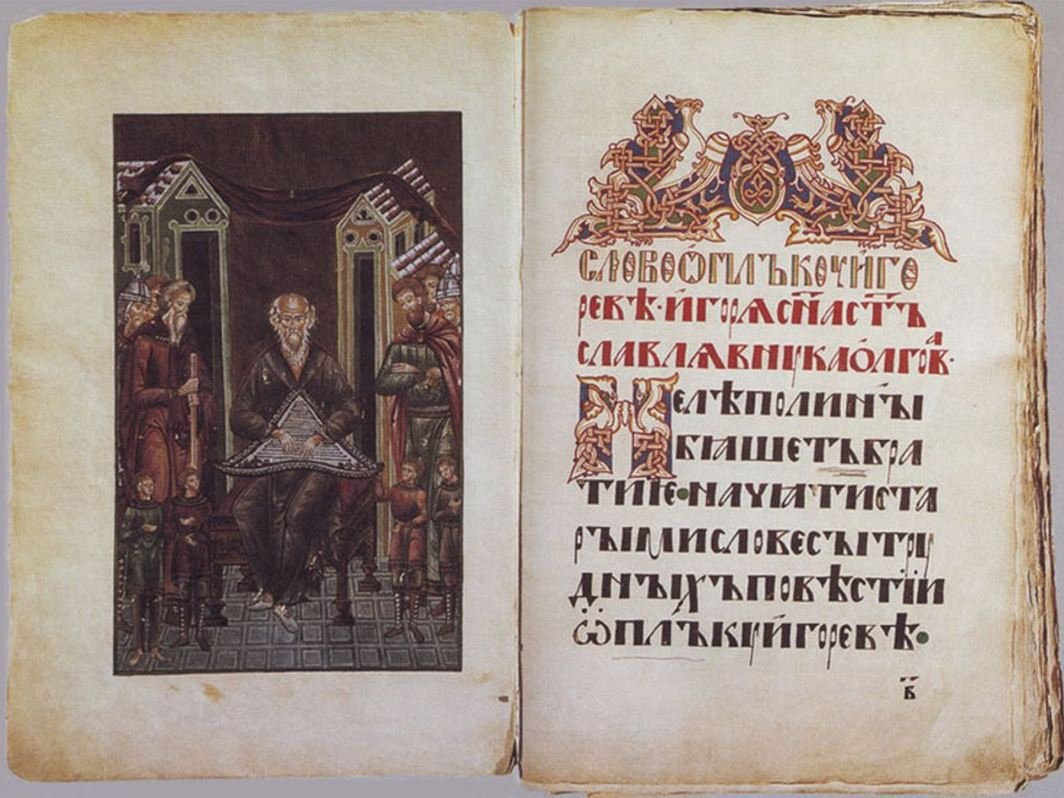 СЛОВОѠПЛЪКОУИ́ГО
ревѣ·и́горѧсн҃аст҃ъ
славлѧвнꙋкаѻ́лговⷶ·
Нелѣполинꙑ
бꙗшетъбра
тиѥ·начꙗтиста
рꙑмисловесꙑтрꙋ
днꙑхъповѣстїи
ѡплъкꙋи́горевѣ·
в҃